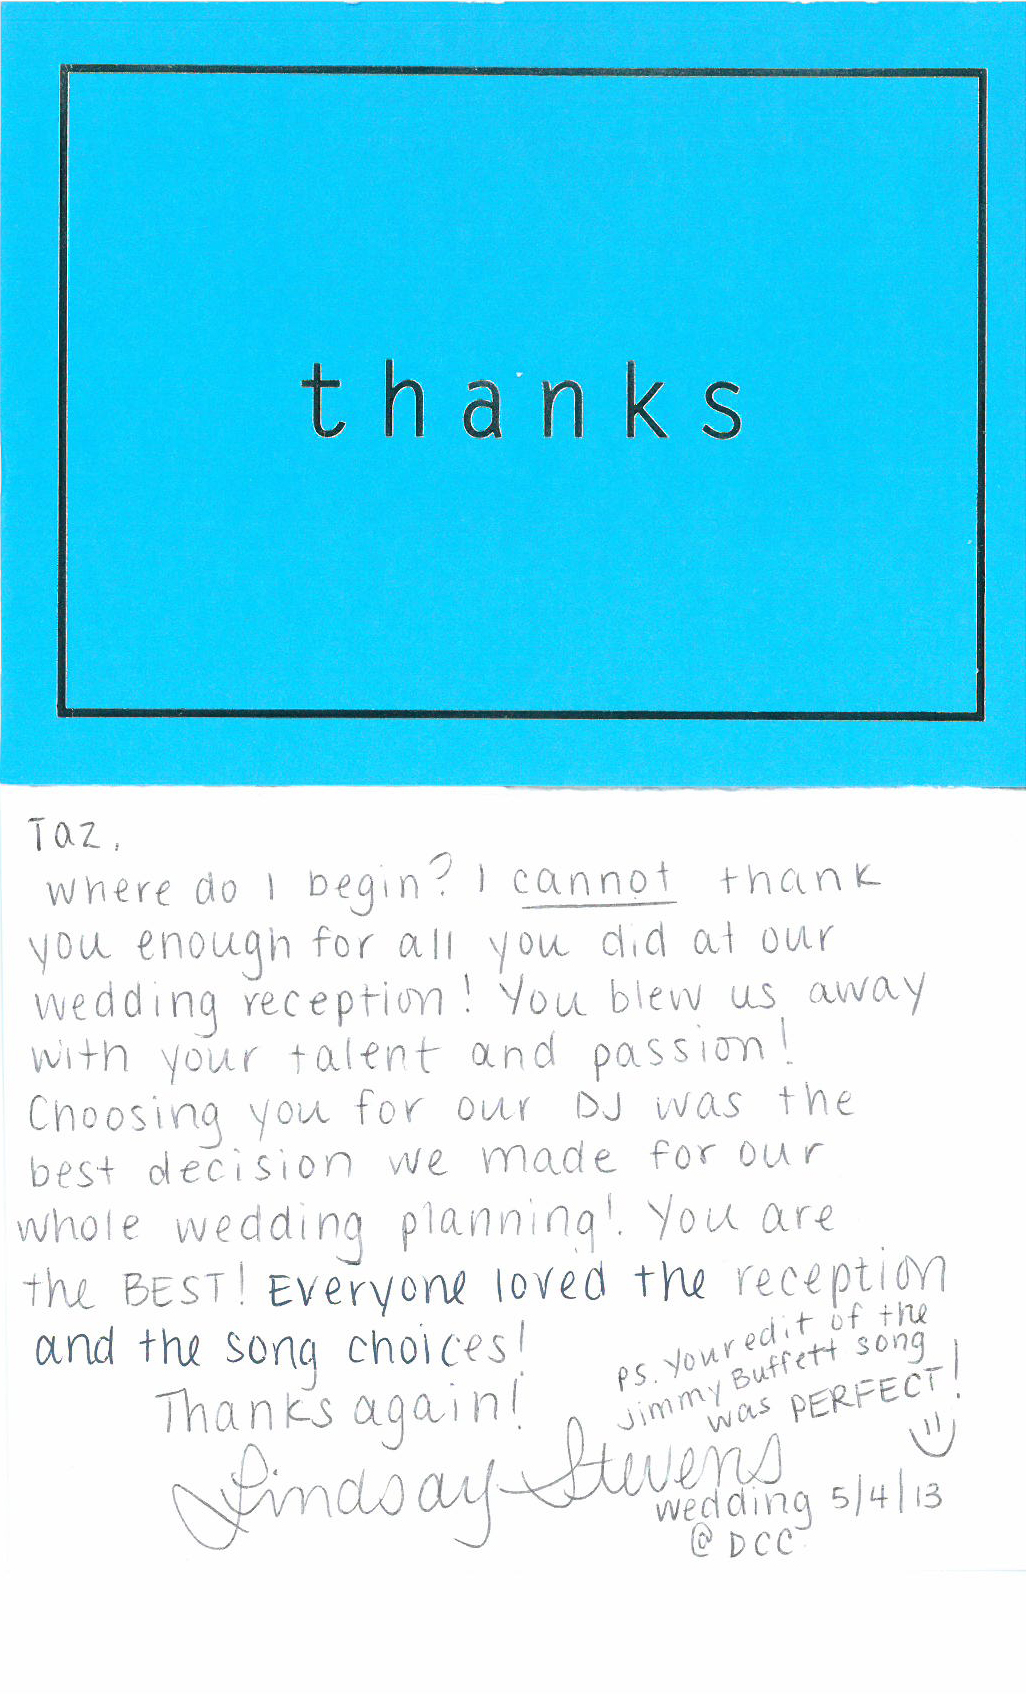 thanks
Taz,
Where do I begin? I cannot thank
you enough for all you did at our
wedding reception! You blew us away
with your talent and passion!
Choosing you for our DJ was the
best decision we made for our
whole wedding planning! You are
the BEST! Everyone loved the reception
and the song choices!
Thanks again!
Lindsay Stevens
ps. your edit of the
Jimmy Buffett song
was PERFECT!
wedding 5/4/13
@ DCC